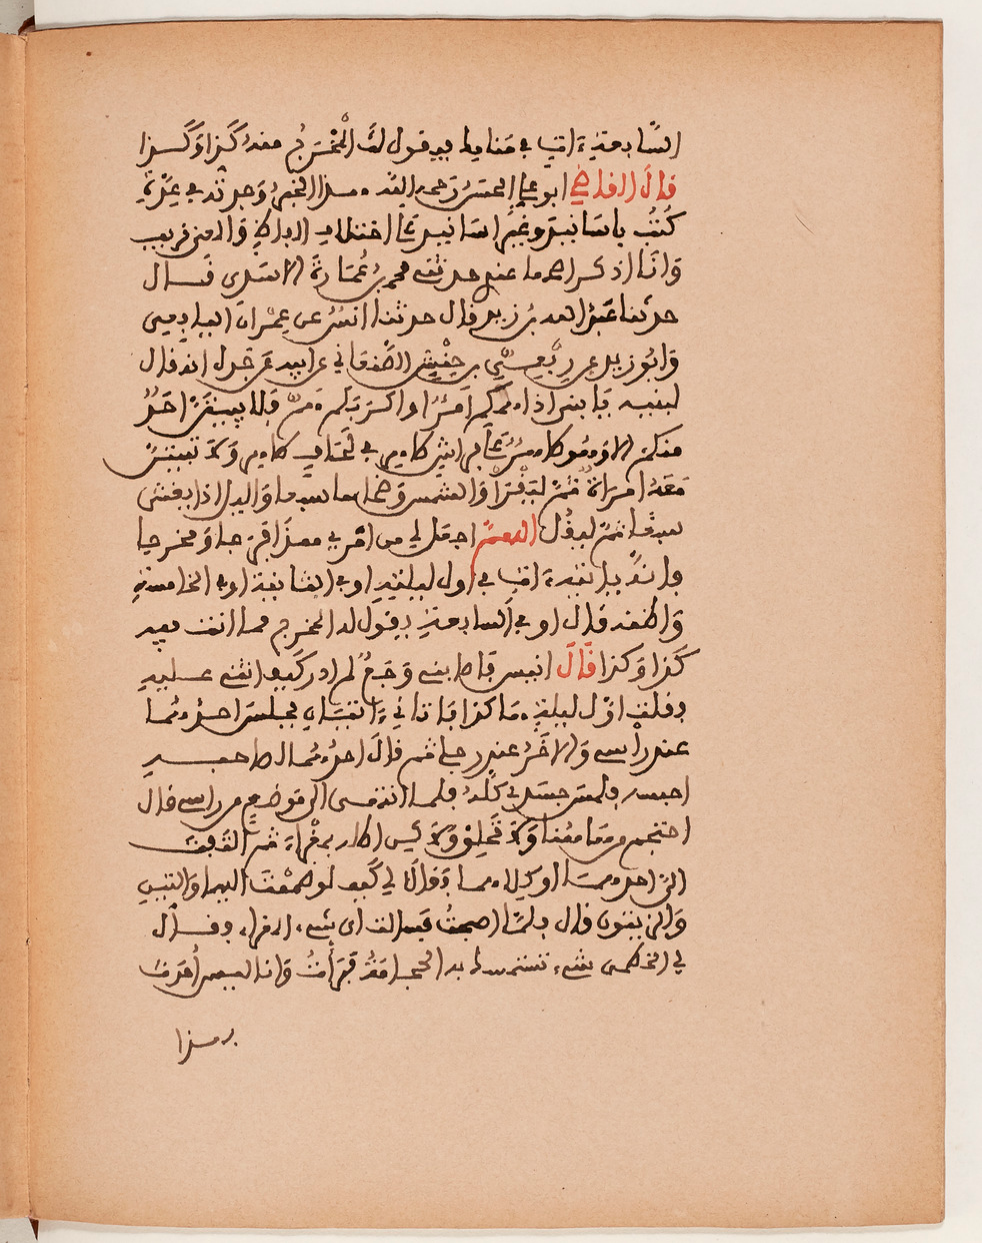 السّابعة ءات في منامك فيقول لك المَخْرَج منه كَذا وَكَذا
قالَ القاضي ابو علي المحسّن رَحمه الله هذا الخبر وَجدته في عِدّة
كُتُب باسَانيد وغير اسَانيد على اختلاف الالفاظ وَالمعنى قريب
وَانَا اذكر اصحها عندي حدثني محمد بن عُمَارة الاسَدي قال
حدثنا عَبْد الله بن يزيد قال حدثنا انسُ بن عِمْران اليافعي
وَابُو يزيد عن رَبعي بن حنيش الصّنعاني عن ابيه عن جَدّه انه قال
لبنيه يَا بني اذا دهمكم امْرٌ او اكربكم همّ فلا يبيتنّ احَدٌ
منكم الا وَهُو طاهرٌ على فراش طاهر في لحَاف طاهر وَلا تبيتنّ
مَعَهُ امرَاة ثمّ ليَقْرَأ وَالشمس وَضحاها سبعا وَالليل اذا يغشى
سبعا ثمّ ليقُل اللهمّ اجعَل لي من امْري هذا فرَجا وَمخرجا
فانّه ياتيه ءات في اول ليلة او في الثالثة او في الخامسة
وَاظنه قال او في السابعة يقول له المخرج مما انت فيه
كَذا وَكذا قالَ انيس فاصابني وَجَعٌ لم ادر كَيف اتّي عليه
ففعلت اوّل ليلة هَاكذا فاتاني ءاتيَان فجلس احدُهُما
عند رأسي وَالاخَرُ عند رجلي ثم قالَ احدُهُما لصاحبه
احبسه فلمس جسدي كلّهُ فلما انتهى الى مَوضع من راسي قال
احتجم هَاهُنا وَلا تَحلِقْ وَلاكن اطله بغْراء ثمّ التفت
اليّ احدهمَا او كلاهما وَقالا لي كَيف لو ضممْتَ اليها وَالتين
وَالزيتون قال فلمّا اصبحتُ سالت اي شيء الغراء فقال
لي الخطمى شيء تستمسك به المحجمة فبَرأتُ وَانا ليس احَدث
بهذا